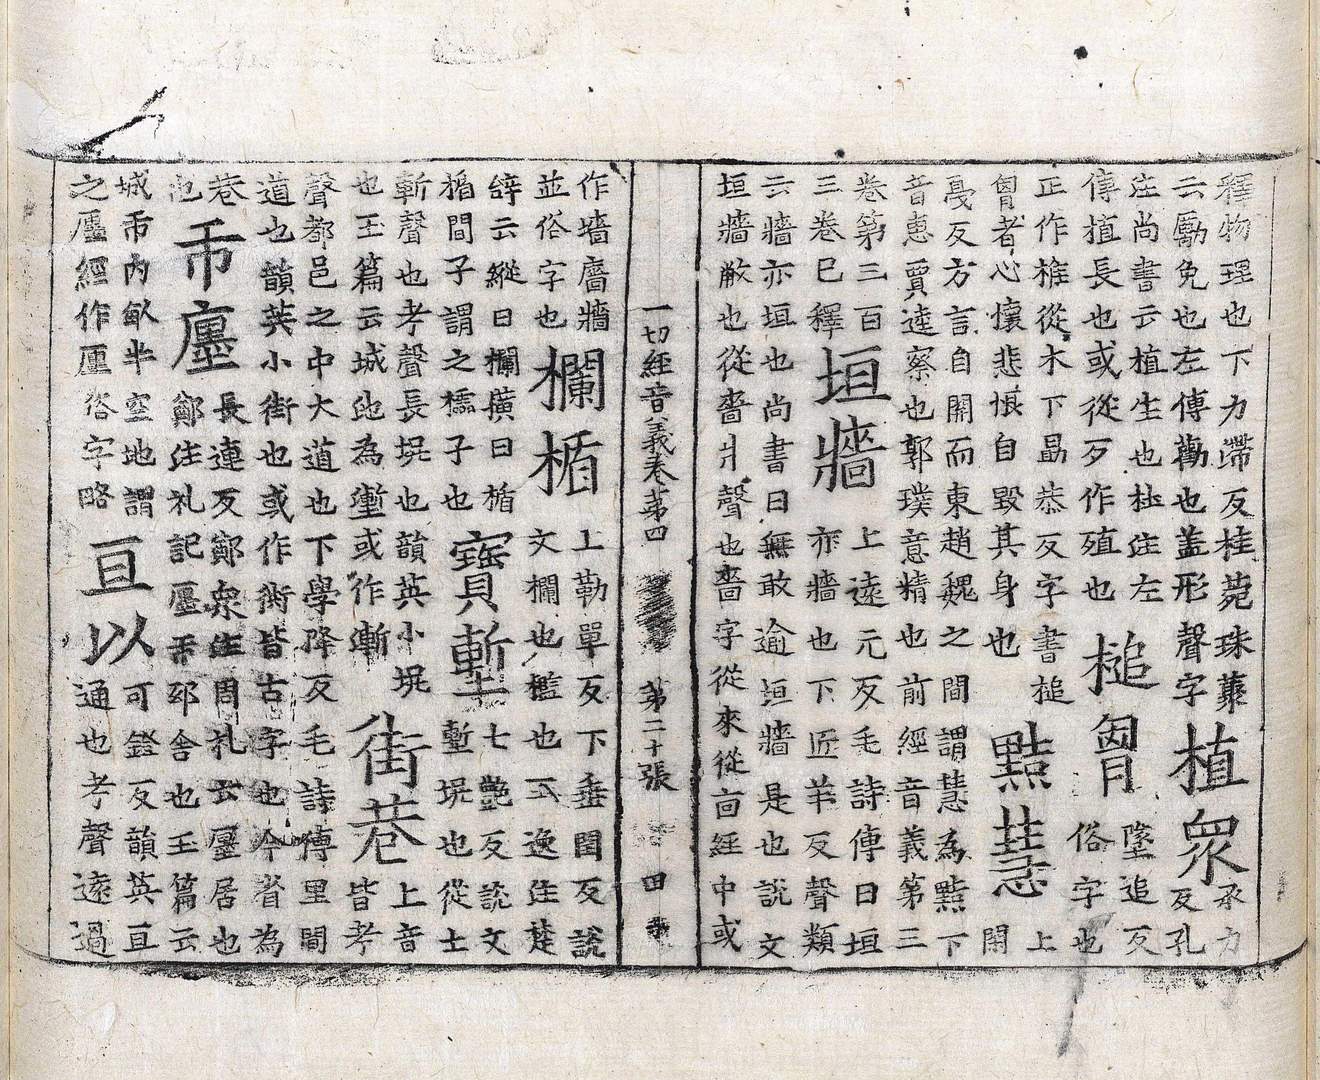 釋物理也下力滯反桂菀珠藂植眾承力
云勵免也左傳勸也蓋形聲字反孔
注尚書云植生也杜注左槌胷墜追反
傳植長也或從歹作殖也俗字也
正作椎從木下勗恭反字書槌黠慧上
胷者心懷悲恨自毀其身也閑
戞反方言自關而東趙魏之間謂慧為黠下
音惠賈逵察也郭璞意精也前經音義第三
卷第三百垣牆上遠元反毛詩傳曰垣
三卷已釋亦牆也下匠羊反聲類
云牆亦垣也尚書曰無敢逾垣牆是也說文
垣牆蔽也從嗇爿聲也嗇字從來從㐭經中或
一切經音義卷第四 第二十張 田
作墻廧牆欄楯上勒單反下垂閏反說
並俗字也文欄也檻也王逸注楚
辭云縱曰欄橫曰楯寶塹七艷反說文
楯間子謂之櫺子也塹坑也從土
斬聲也考聲長坑也韻英小坑街巷上音
也玉篇云城池為塹或作漸皆考
聲都邑之中大道也下學降反毛詩傳里間
道也韻英小街也或作衖皆古字也今省為
巷市廛長連反鄭眾注周礼云廛居也
也鄭注礼記廛市邸舍也玉篇云
城市內畝半空地謂亘以可鐙反韻英亘
之廛經作㕓俗字略通也考聲遠過